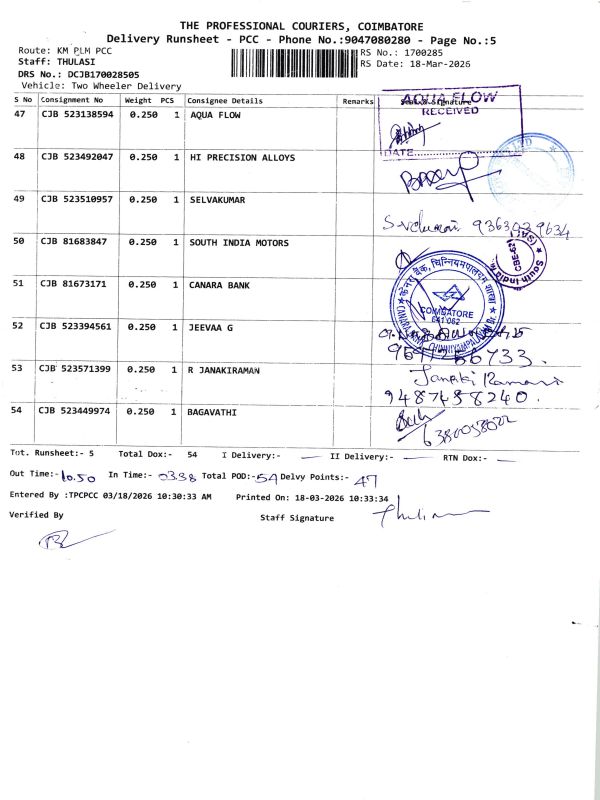 THE PROFESSIONAL COURIERS, COIMBATORE
Delivery Runsheet - PCC - Phone No.:9047080280 - Page No.:5
Route: KM PLM PCC
RS No.: 1700285
Staff: THULASI
RS Date: 18-Mar-2026
DRS No.: DCJB170028505
Vehicle: Two Wheeler Delivery
S No Consignment No Weight PCS Consignee Details Remarks
47 CJB 523138594 0.250 1 AQUA FLOW
AQUA FLOW
RECEIVED
DATE
48 CJB 523492047 0.250 1 HI PRECISION ALLOYS
49 CJB 523510957 0.250 1 SELVAKUMAR
50 CJB 81683847 0.250 1 SOUTH INDIA MOTORS
South India
51 CJB 81673171 0.250 1 CANARA BANK
COIMBATORE
641 062
52 CJB 523394561 0.250 1 JEEVAA G
53 CJB 523571399 0.250 1 R JANAKIRAMAN
Janaki Raman
9487458240.
54 CJB 523449974 0.250 1 BAGAVATHI
6380058022
Tot. Runsheet:- 5 Total Dox:- 54 I Delivery:- — II Delivery:- — RTN Dox:- —
Out Time:- 10.50 In Time:- 03.38 Total POD:- 54 Delvy Points:- 47
Entered By :TPCPCC 03/18/2026 10:30:33 AM Printed On: 18-03-2026 10:33:34
Verified By
Staff Signature